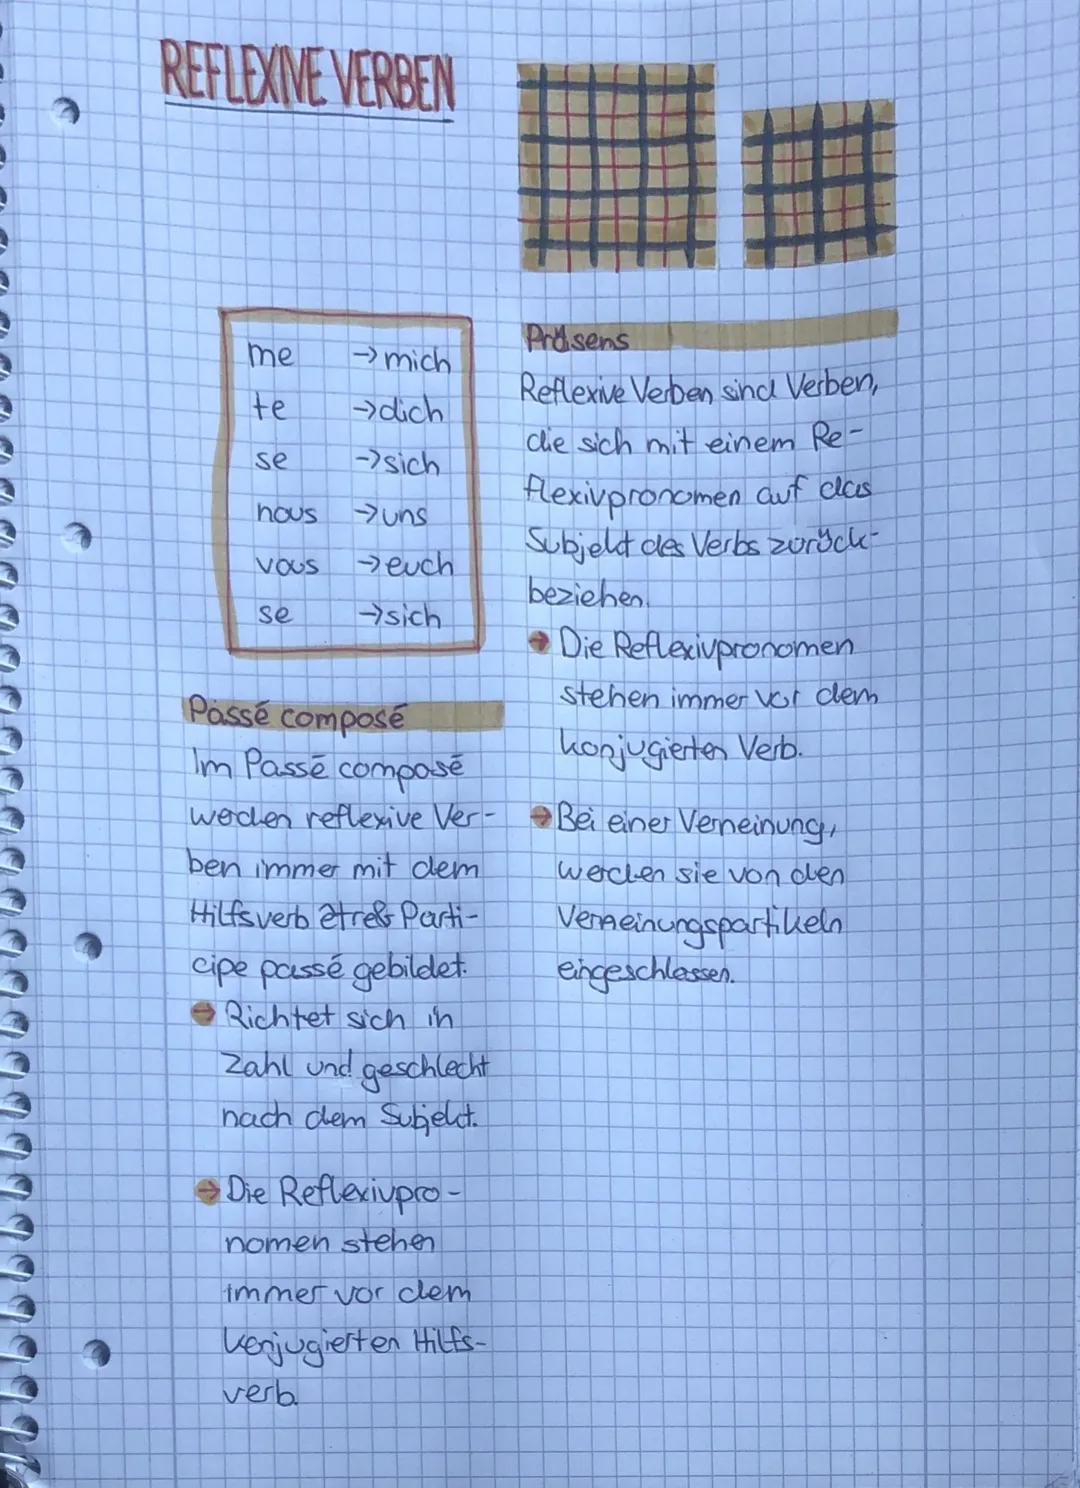 REFLEXIVE VERBEN
me → mich
te → dich
se → sich
nous → uns
vous → euch
se → sich
Präsens
Reflexive Verben sind Verben,
die sich mit einem Re-
flexivpronomen auf das
Subjekt des Verbs zurück-
beziehen.
→ Die Reflexivpronomen
stehen immer vor dem
konjugierten Verb.
→ Bei einer Verneinung,
werden sie von den
Verneinungspartikeln
eingeschlossen.
Passé composé
Im Passé composé
werden reflexive Ver-
ben immer mit dem
Hilfsverb être & Parti-
cipe passé gebildet.
→ Richtet sich in
Zahl und geschlecht
nach dem Subjekt.
→ Die Reflexivpro-
nomen stehen
immer vor dem
konjugierten Hilfs-
verb.